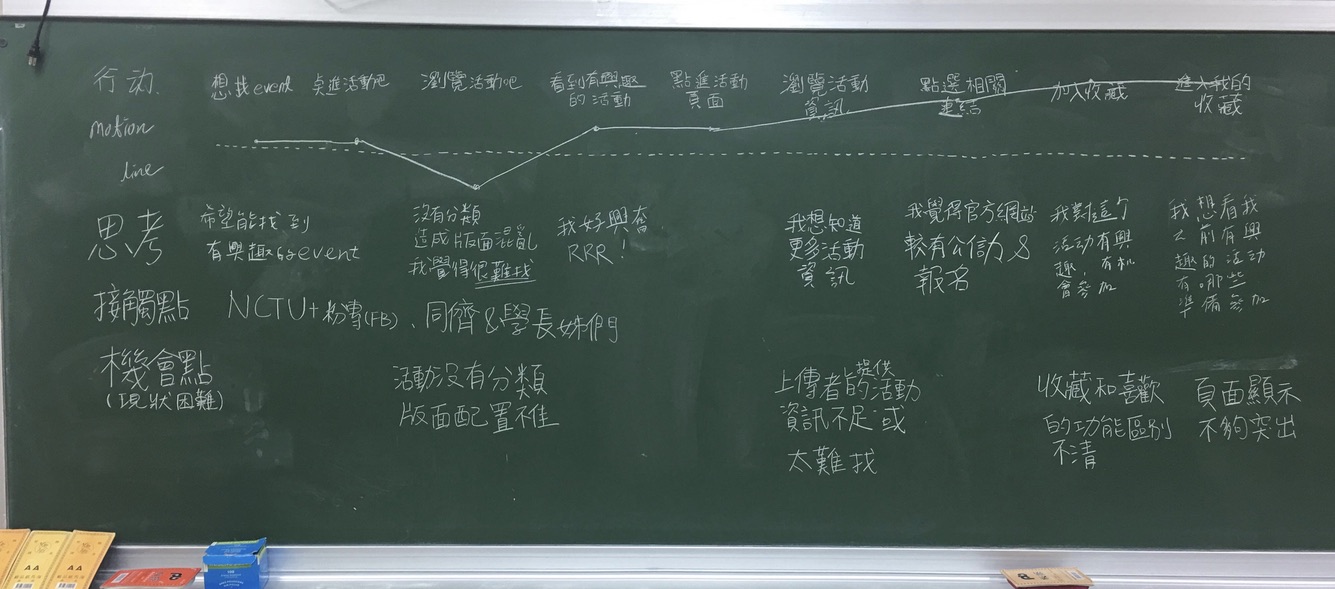 行动
想找event
点進活動吧
瀏覽活動吧
看到有興趣
的活動
點進活動
頁面
瀏覽活動
資訊
點選相關
連結
加入收藏
進入我的
收藏
motion
line
思考
希望能找到
有興趣的event
沒有分類
造成版面混亂
我覺得很難找
我好興奮
RRR!
我想知道
更多活動
資訊
我覺得官方網站
較有公信力&
報名
我對這个
活动有興
趣,有机
會参加
我想看我
之前有興
趣的活动
有哪些
準備参加
接觸點
NCTU+粉專(FB)、同儕&學長姊們
機會點
(現狀困難)
活動沒有分類
版面配置不佳
上傳者提供的活動
資訊不足或
太難找
收藏和喜歡
的功能區別
不清
頁面顯示
不夠突出
AA
AA